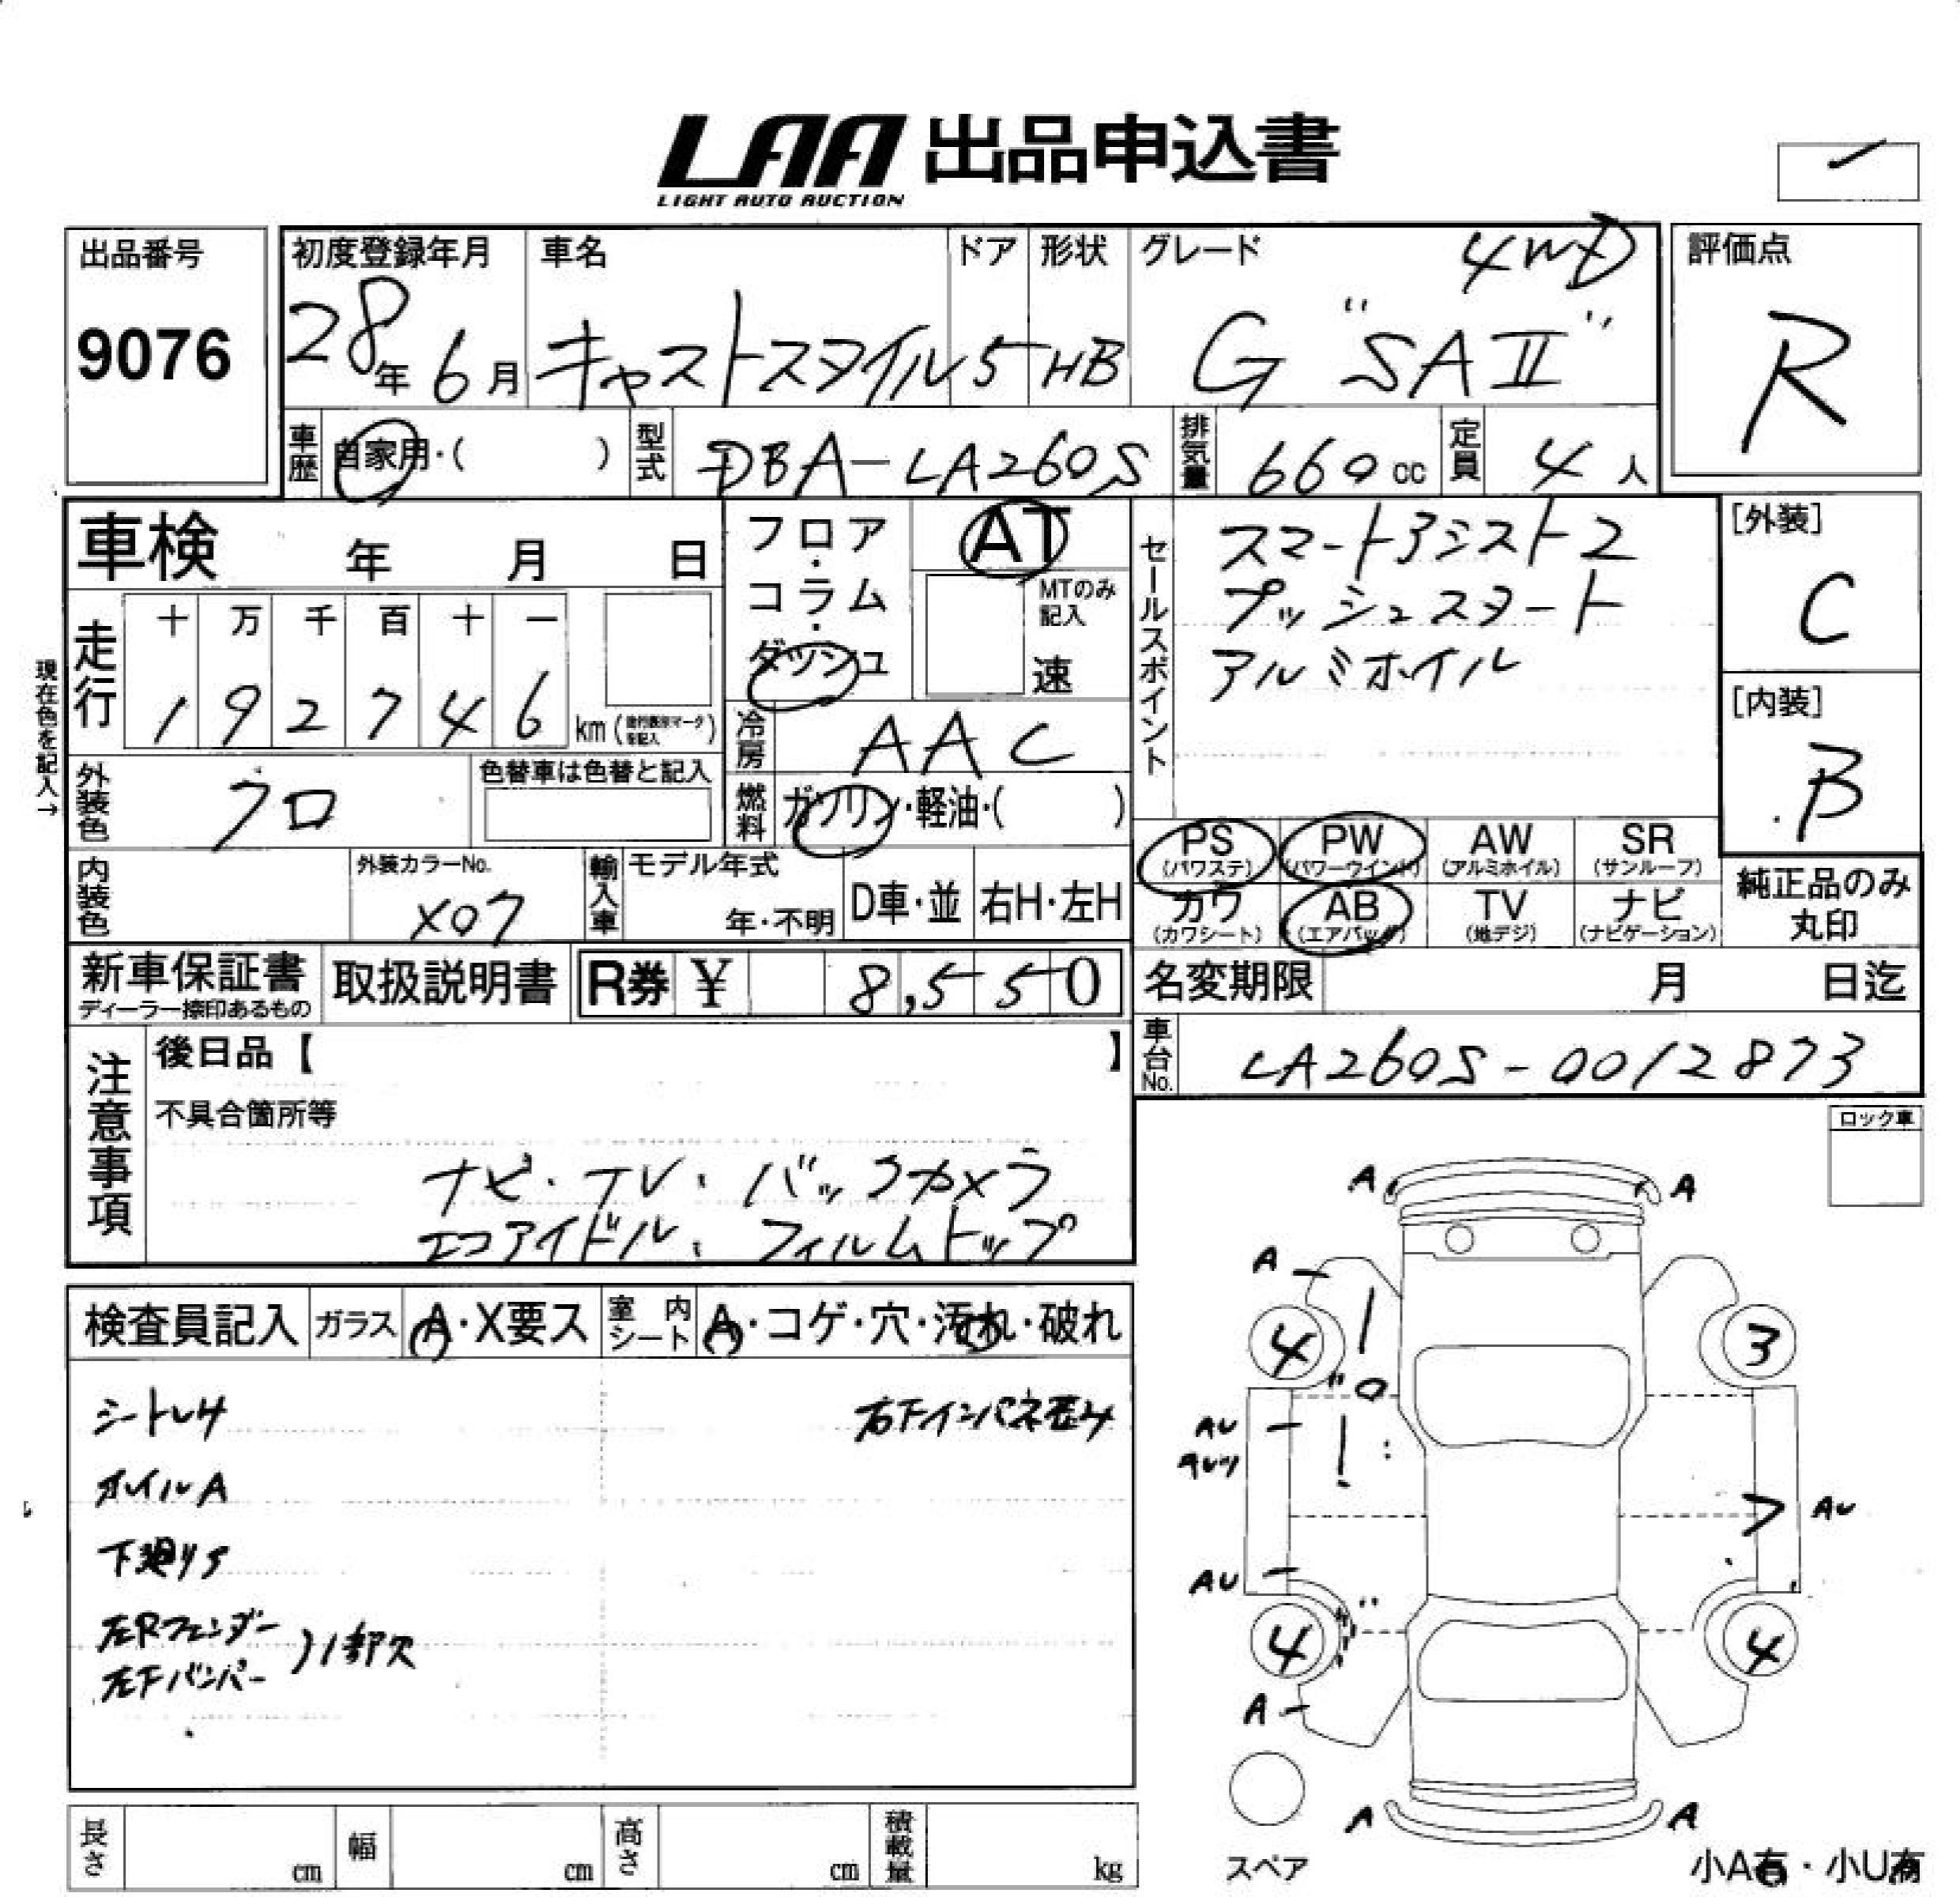 LAA 出品申込書
LIGHT AUTO AUCTION
出品番号
9076
初度登録年月
28年 6月
車名
キャストスタイル
ドア
5
形状
HB
グレード
4WD
G "SAⅡ"
評価点
R
車歴
自家用・( )
型式
DBA-LA260S
排気量
660 cc
定員
4 人
車検 年 月 日
フロア・コラム・ダッシュ
AT
MTのみ記入
速
セールスポイント
スマートアシスト2
プッシュスタート
アルミホイル
[外装]
C
[内装]
B
現在色を記入→
走行
十 万 千 百 十 一
1 9 2 7 4 6 km
冷房
AAC
燃料
ガソリン・軽油・( )
外装色
クロ
色替車は色替と記入
内装色
外装カラーNo.
X07
輸入車
モデル年式
年・不明
D車・並
右H・左H
PS
(パワステ)
PW
(パワーウインド)
AW
(アルミホイル)
SR
(サンルーフ)
カワ
(カワシート)
AB
(エアバック)
TV
(地デジ)
ナビ
(ナビゲーション)
純正品のみ
丸印
新車保証書
ディーラー捺印あるもの
取扱説明書
R券 ¥ 8,550
名変期限 月 日迄
車台No.
LA260S-0012873
注意事項
後日品【 】
不具合箇所等
ナビ・TV・バックカメラ
エコアイドル・フィルムトップ
ロック車
検査員記入
ガラス
A・X要ス
室内シート
A・コゲ・穴・汚れ・破れ
シートレサ
右下インパネ歪み
オイルA
下廻りS
左Rフェンダー
左Fバンパー
)1部欠
A A
A
4 3
AU
AU
AU
4 4
A
A A
スペア
小A有・小U有
長さ cm
幅 cm
高さ cm
積載量 kg